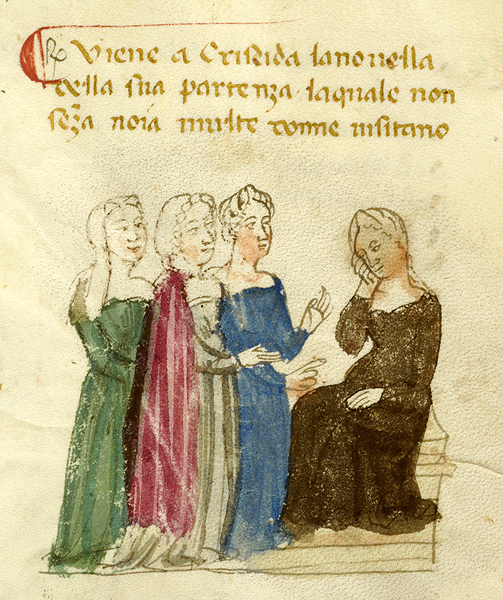 Viene a Criseida la novella
della sua partenza laquale non
seza noia multe donne uisitano